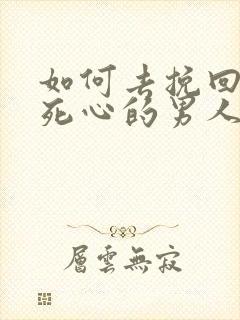 如何去挽回
死心的男人
層雲無寂